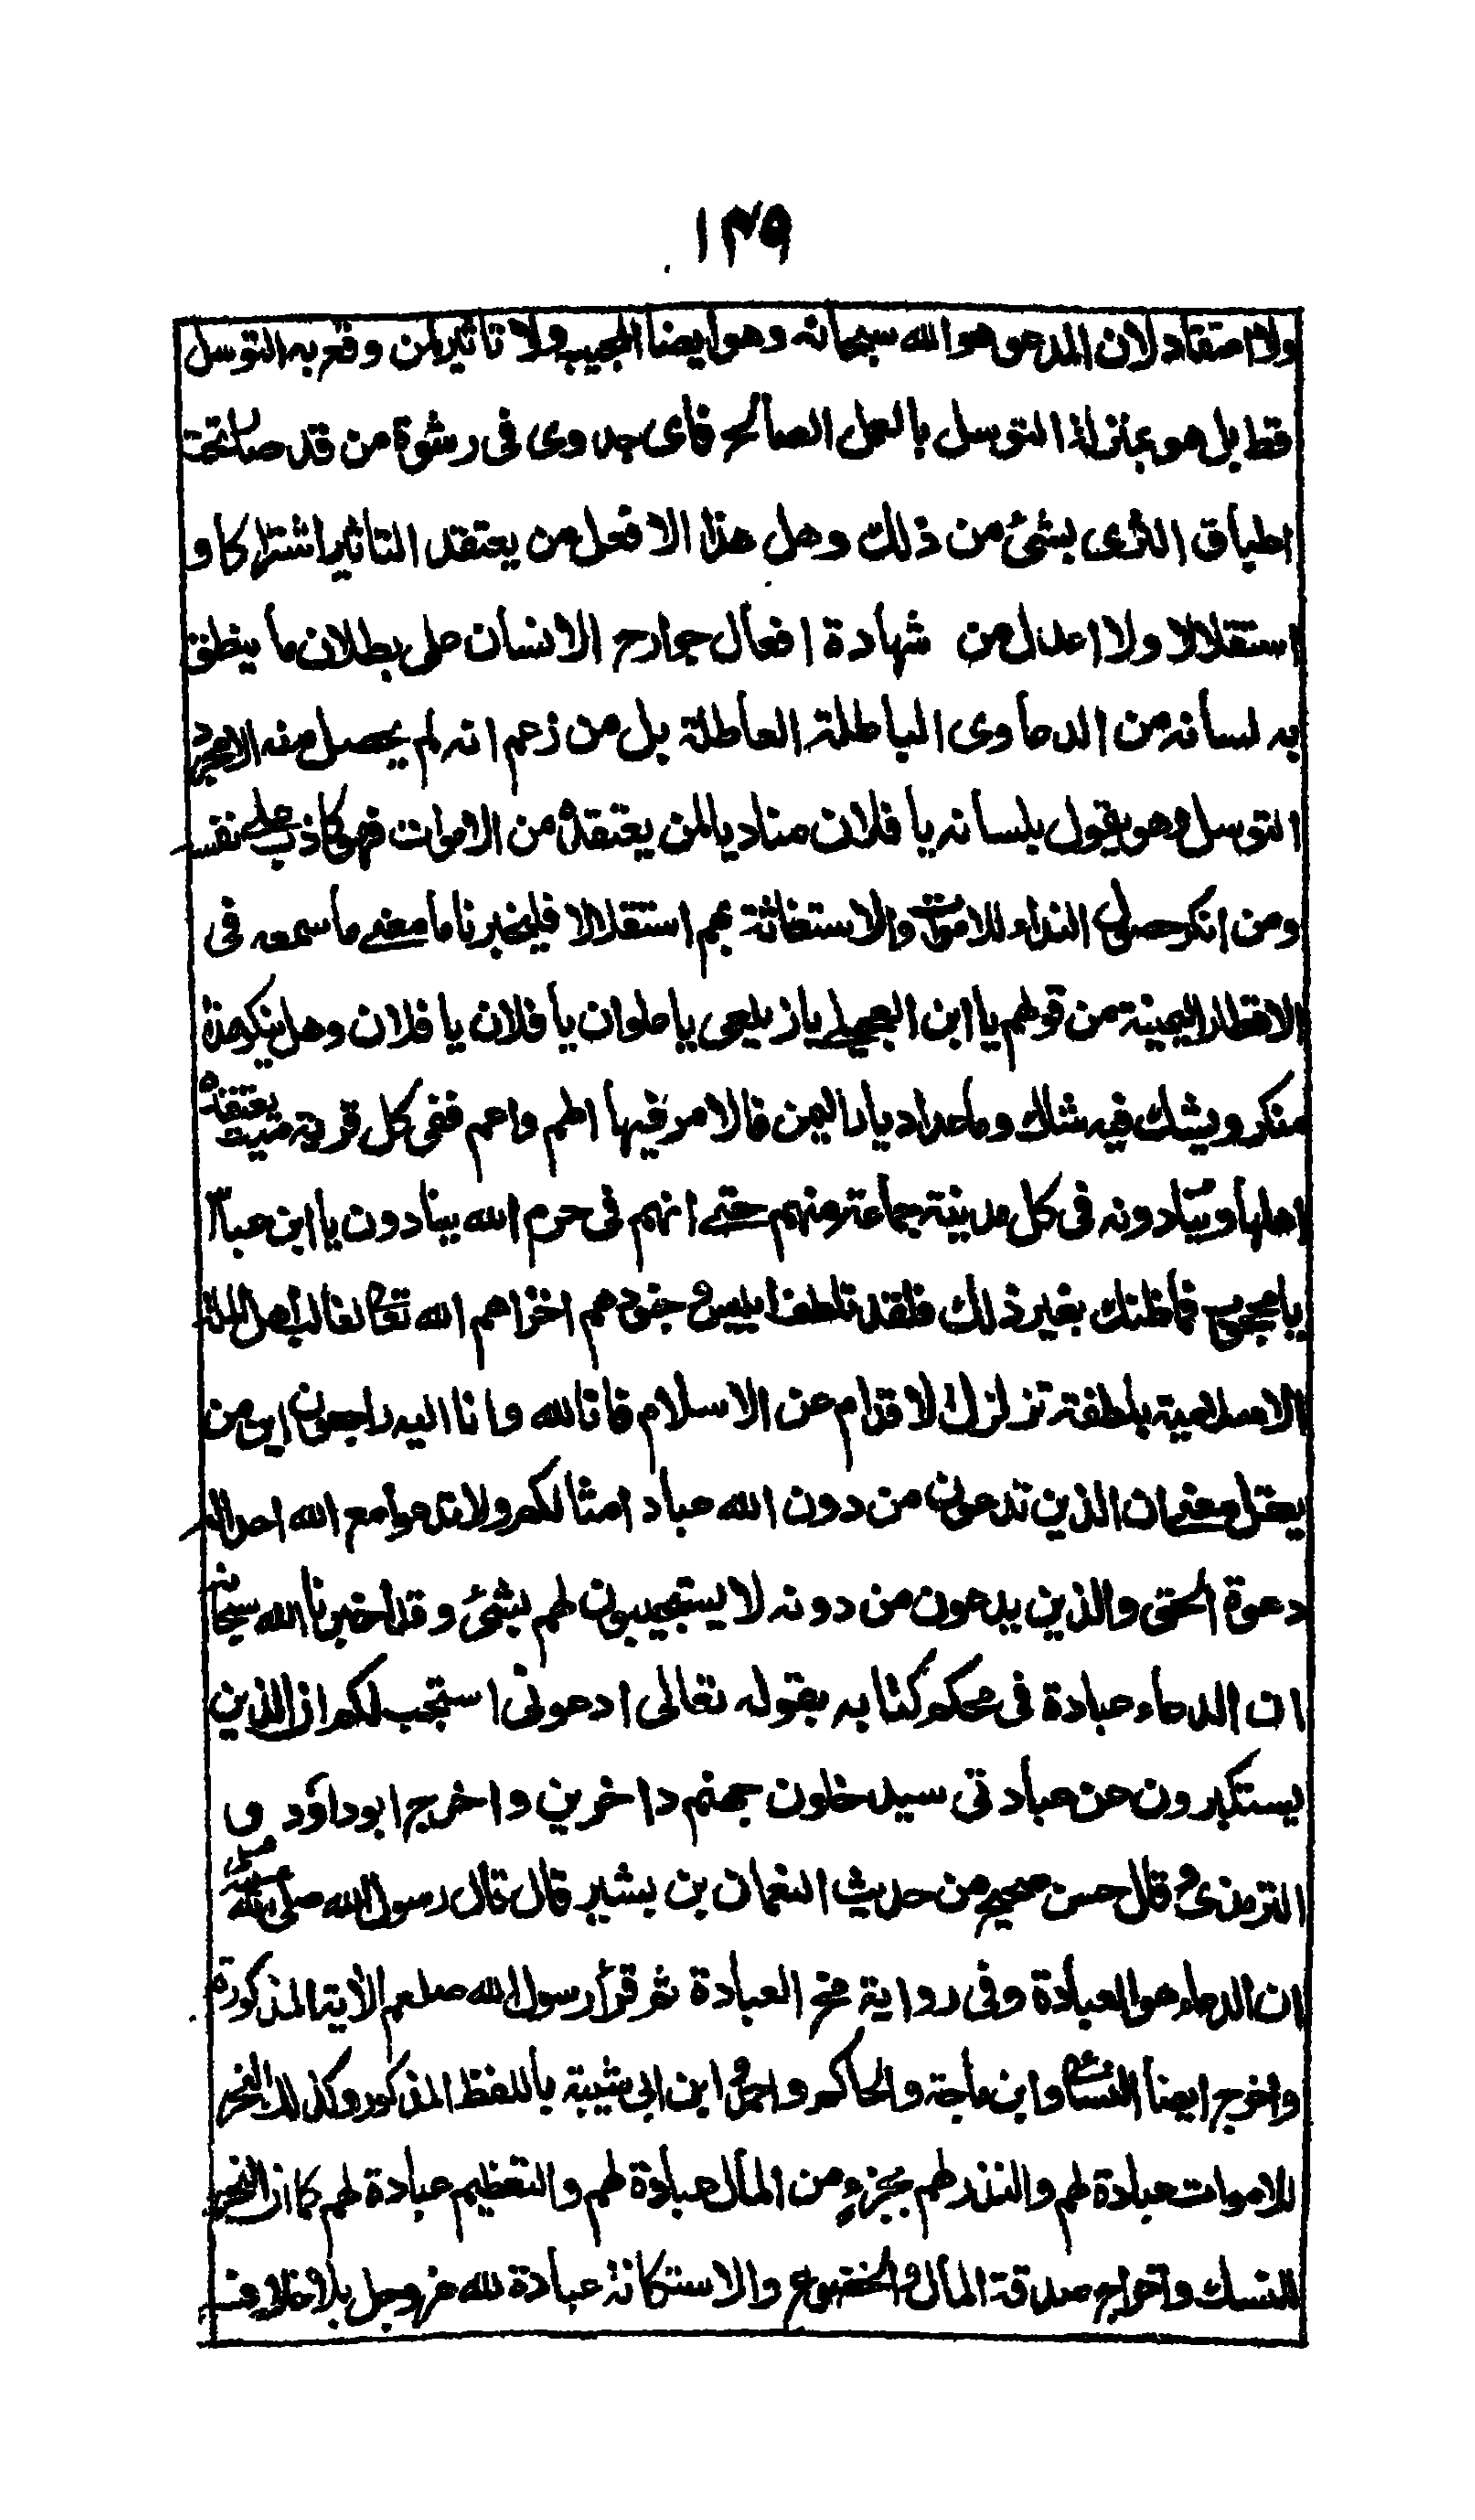 ١٣٩
ولا اعتقاد لان المدعو هو الله سبحانه وهو ايضا المجيب ولا تاثير لمن وقع به التوسل
قط بل هو بمنزلة التوسل بالعمل الصالح فاى جدوى فى رشوة من قد صار تحت
اطباق الثرى بشئ من ذلك وهل هذا الا فعل من يعتقد التاثير اشتراكا و
استقلالا ولا اعدل من شهادة افعال جوارح الانسان على بطلان ما ينطق
به لسانه من الدعاوى الباطلة العاطلة بل من زعم انه لم يحصل منه الا مجرد
التوسل وهو يقول بلسانه يا فلان مناديا لمن يعتقده من الاموات فهو كاذب على نفسه
ومن انكر حصول النداء للاموات والاستغاثة بهم استقلالا فليخبرنا ما معنى ما سمعه فى
الاقطار اليمنية من قولهم يا ابن العجيل يا زيلعى يا علوان يا فلان يا فلان وهل ينكر هذا
منكر ويشك فيه شاك وما عدا ديار اليمن فالامر فيها اطم واعم ففى كل قرية ميت يعتقده
اهلها وينادونه فى كل مدينة جماعة منهم حتى انهم فى حرم الله ينادون يا ابن عباس
يا محجوب فما ظنك بغير ذلك فلقد تلطف ابليس وجنوده اخزاهم الله تعالى لغالب اهل الملة
الاسلامية بلطفة تزلزل الاقدام عن الاسلام فانا لله وانا اليه راجعون اين من
يعقل معنى ان الذين تدعون من دون الله عباد امثالكم ولا تدعوا مع الله احدا له
دعوة الحق والذين يدعون من دونه لا يستجيبون لهم بشئ وقد اخبرنا الله سبحانه
ان الدعاء عبادة فى محكم كتابه بقوله تعالى ادعونى استجب لكم ان الذين
يستكبرون عن عبادتى سيدخلون جهنم داخرين واخرج ابو داؤد و
الترمذى وقال حسن صحيح من حديث النعمان بن بشير قال قال رسول الله صلى الله
ان الدعاء هو العبادة وفى رواية مخ العبادة ثم قرأ رسول الله صلعم الآية المذكورة
واخرج ايضا النسائى وابن ماجة والحاكم واحمد وابن ابى شيبة باللفظ المذكور وكذلك النحر
للاموات عبادة لهم والنذر لهم بجزء من المال عبادة لهم والتعظيم عبادة لهم كما ان النحر
للنسك واخراج صدقة المال والخضوع والاستكانة عبادة لله عز وجل بلا خلاف